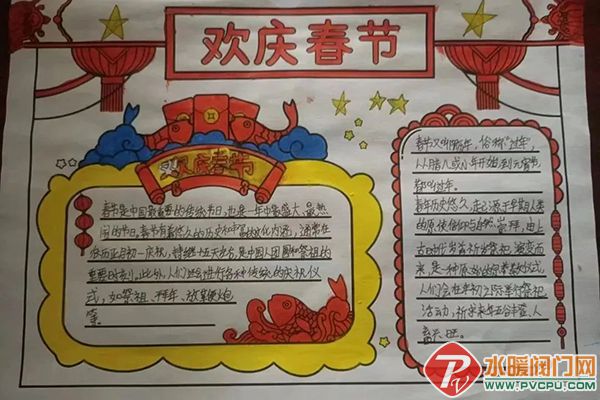 欢庆春节
欢庆春节
春节是中国最重要的传统节日,也是一年中最盛大、最热
闹的节日。春节有着悠久的历史和丰富的文化内涵,通常在
农历正月初一庆祝,持续十五天左右,是中国人团圆和祭祖的
重要时刻。此外,人们还会进行各种传统的庆祝仪
式,如祭祖、拜年、放鞭炮
等。
春节又叫新年,俗称“过年”,
从腊八或小年开始到元宵节
都叫过年。
春节历史悠久,起源于早期人类
的原始信仰与自然崇拜,由上
古时代岁首祈岁祭祀演变而
来,是一种原始的宗教仪式,
人们会在年初之际举行祭祀
活动,祈求来年五谷丰登、人
畜兴旺。
水暖阀门网
WWW.PVCPU.COM